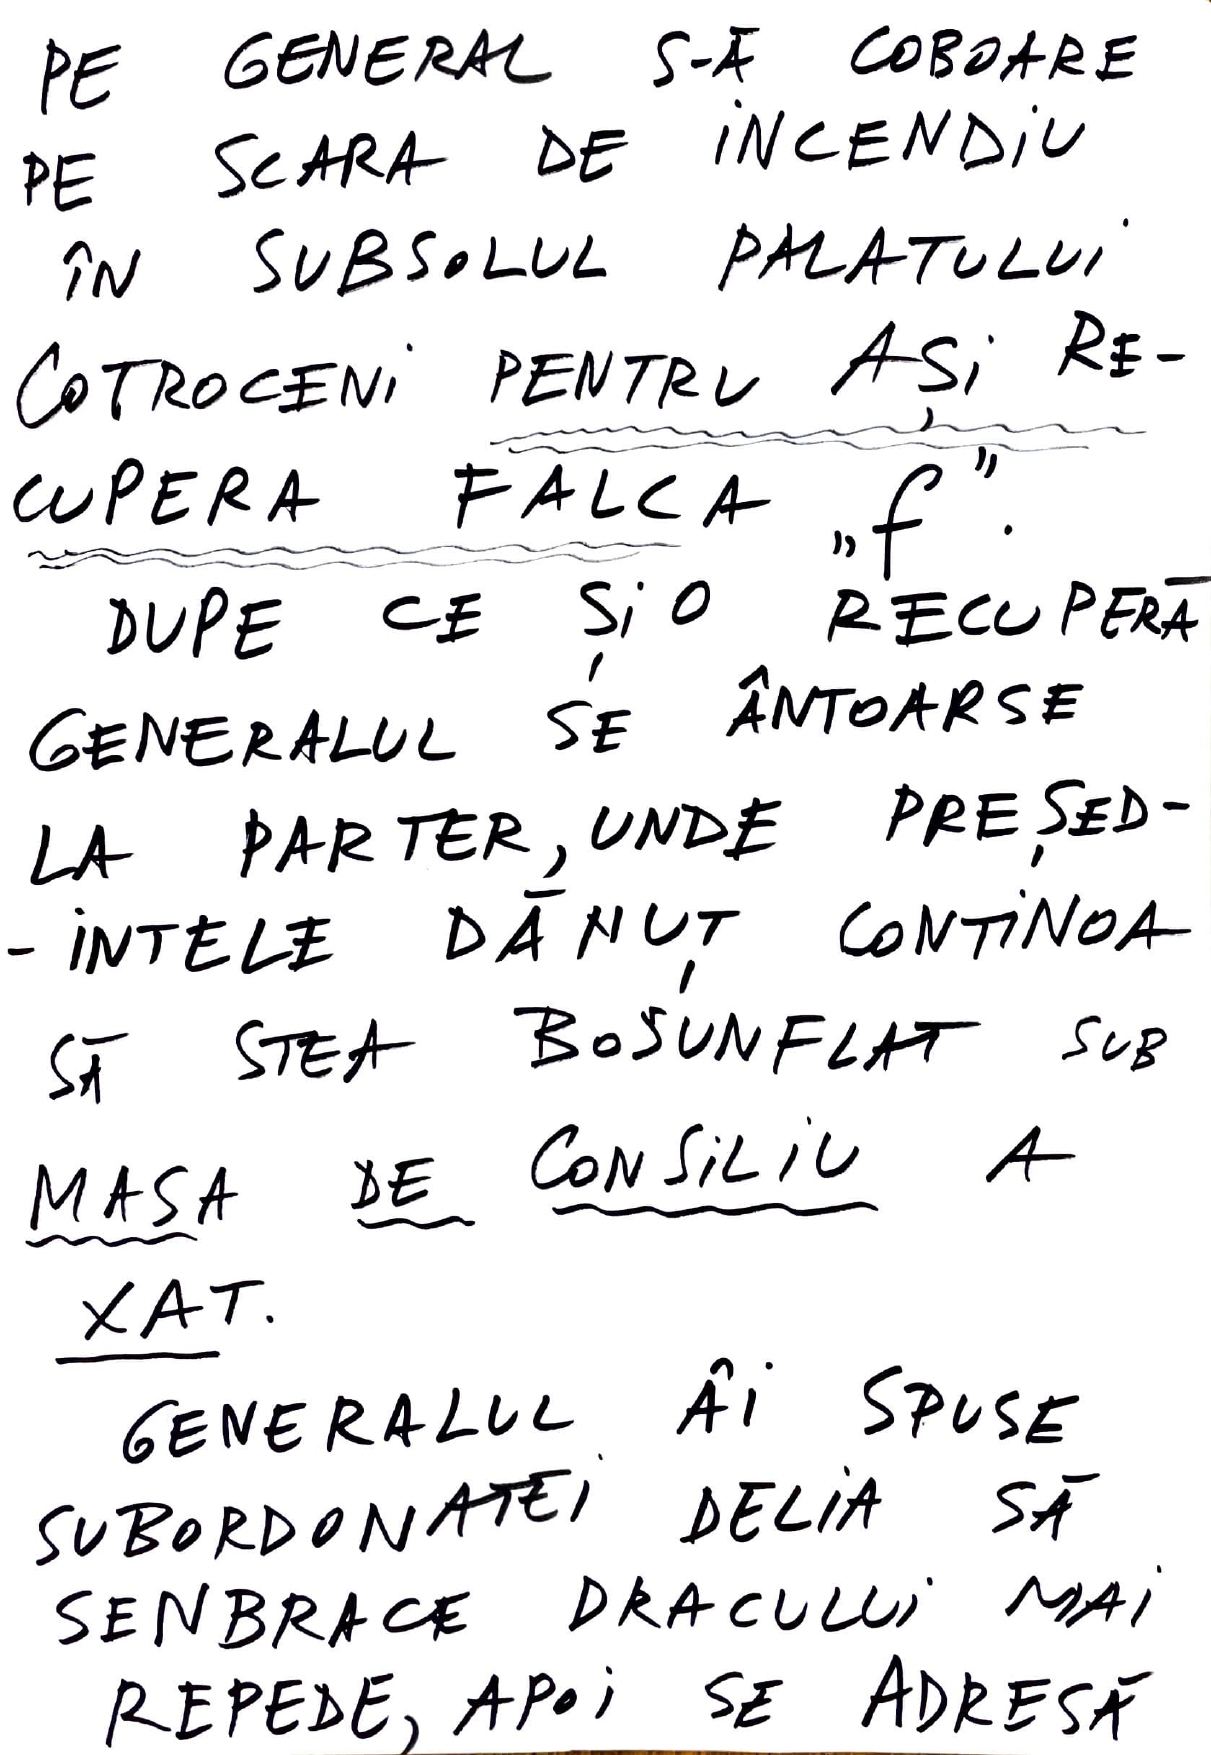 PE GENERAL S-Ă COBOARE
PE SCARA DE INCENDIU
ÎN SUBSOLUL PALATULUI
COTROCENI PENTRU AȘI RE-
CUPERA FALCA „f”.
DUPE CE ȘI O RECUPERĂ
GENERALUL SE ÂNTOARSE
LA PARTER, UNDE PREȘED-
-INTELE DĂNUȚ CONTINOA
SĂ STEA BOSUNFLAT SUB
MASA DE CONSILIU A
XAT.
GENERALUL ÂI SPUSE
SUBORDONATEI DELIA SĂ
SENBRACE DRACULUI MAI
REPEDE, APOI SE ADRESĂ